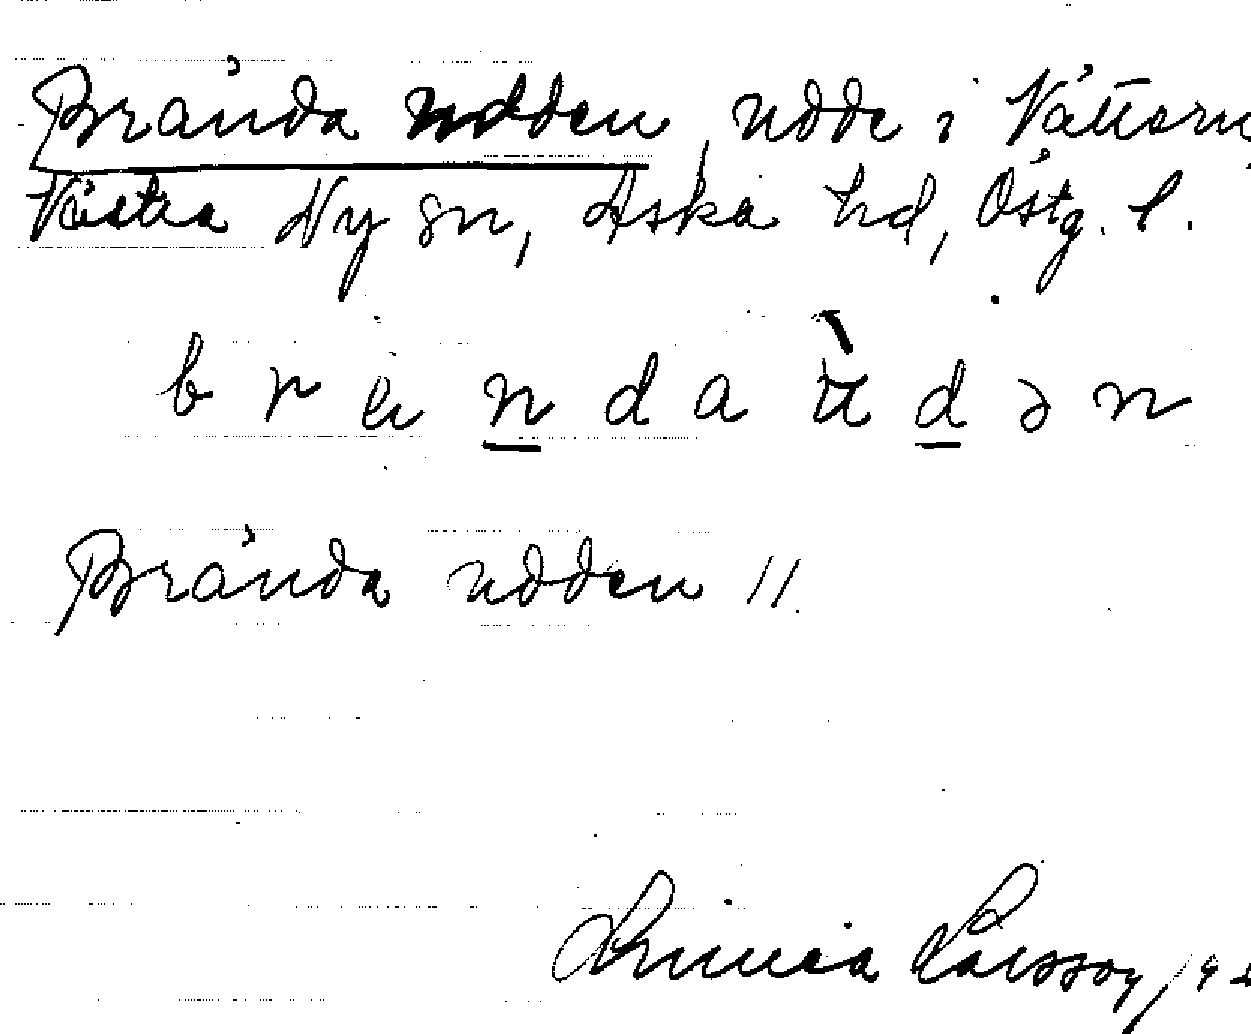 Brända udden, udde i Vättern
Västra Ny sn, Aska hd, Östg. l.
b r ä n d a ù d ə n
Brända udden 11
Linnea Larsson 19